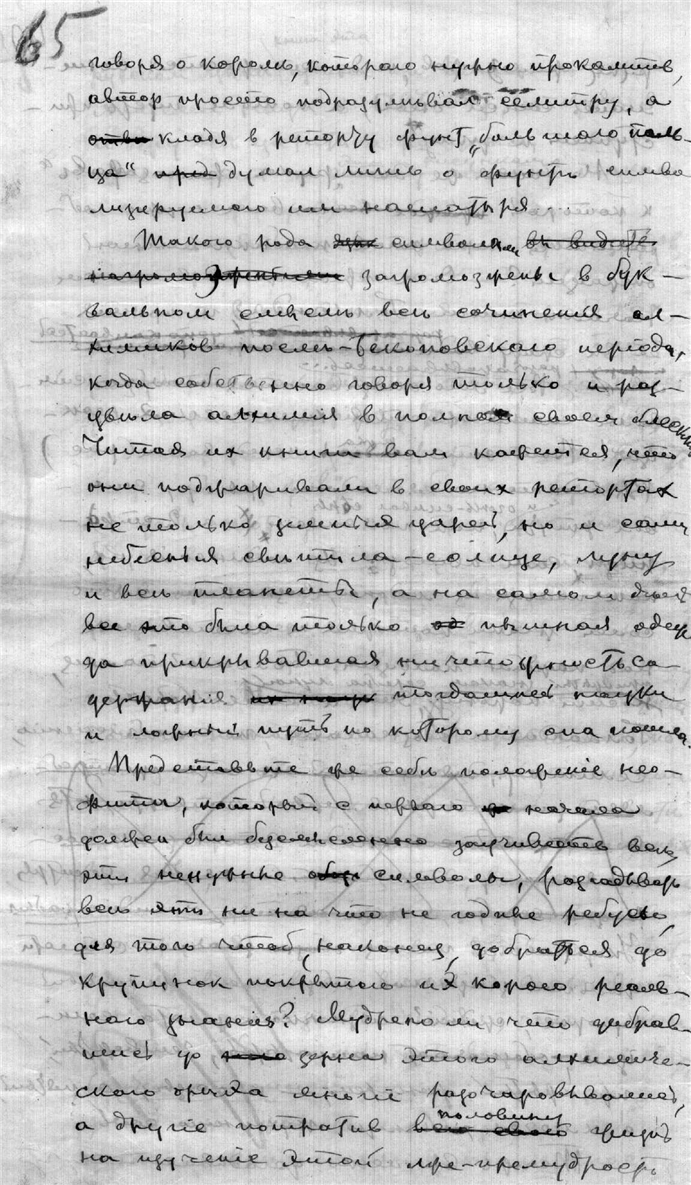 65
говоря о короле, котораго нужно прокалить,
автор просто подразумѣвал селитру, а
кладя в реторту фунт „большого паль-
ца“ думал лишь о фунтѣ симво
лизируемого им нашатыря
Такого рода символами
загромождены в бук-
вальном смыслѣ всѣ сочиненія ал-
химиков послѣ-Беконовскаго періода,
когда собственно говоря только и рас-
цвѣла алхимия в полном своем блескѣ
Читая их книги вам кажется, что
они поджаривали в своих ретортах
не только земных царей, но и сами
небесныя свѣтила - солнце, луну
и всѣ планеты, а на самом дѣлѣ
все это была только пышная одеж
да прикрывавшая ничтожность со
держания тогдашней науки
и ложный путь по которому она пошла.
Представьте же себѣ положеніе нео-
фита, который с перваго начала
должен был безсмысленно заучивать всѣ
эти ненужные символы, разгадывать
всѣ эти ни на что не годные ребусы,
для того чтоб, наконец, добраться до
крупинок покрытого их корою реаль-
ного знания? Мудрено ли что добрав-
шись до зерна этого алхимиче-
ского ореха многие разочаровывались,
а другіе потратив половину жизни
на изучение этой лже-премудрости